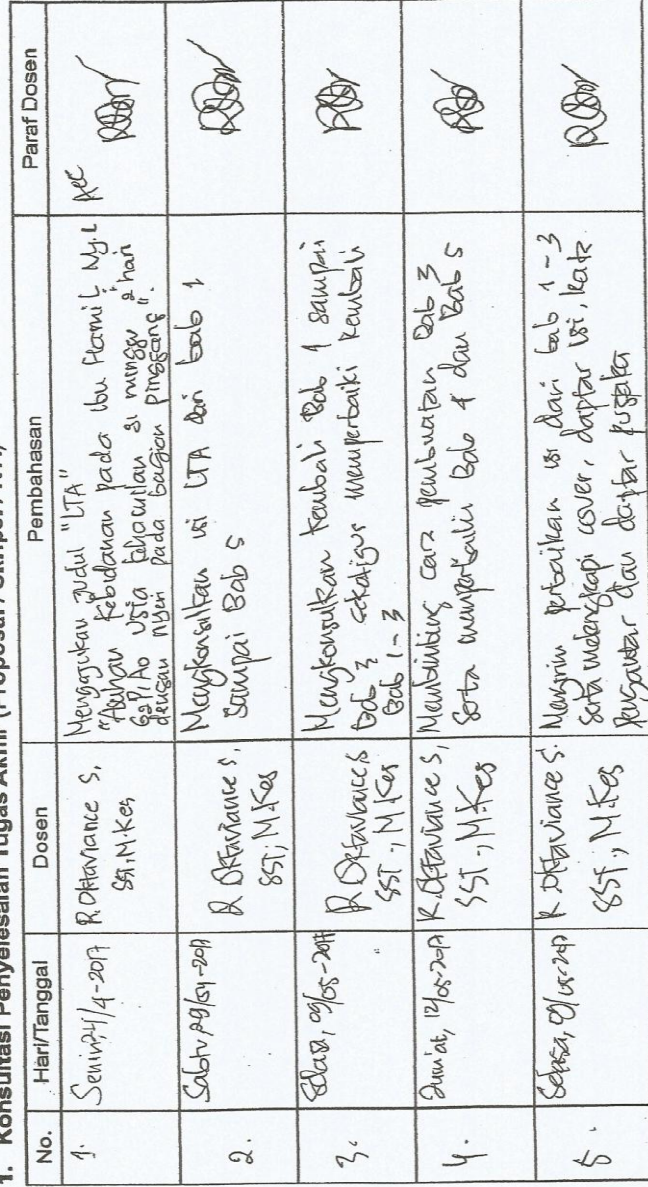 1. Konsultasi Penyelesaian Tugas Akhir (Proposal / Skripsi / KTI)
No. Hari/Tanggal Dosen Pembahasan Paraf Dosen
1. Senin, 24/4-2017 R. Oktaviance S, SST, M.Kes
Mengajukan judul "LTA"
"Asuhan Kebidanan pada Ibu Hamil Ny. L
G2P1A0 Usia kehamilan 31 minggu 2 hari
dengan nyeri pada bagian pinggang".
Acc
2. Sabtu, 29/04-2017 R Oktaviance S, SST, M.Kes
Mengkonsultkan isi LTA dari bab 1
Sampai Bab 5
3. Selasa, 09/05-2017 R Oktaviance S SST., M.Kes
Mengkonsulkan kembali Bab 1 sampai
Bab 3 sekaligus memperbaiki kembali
Bab 1-3
4. Jum'at, 12/05-2017 R. Oktaviance S, SST., M.Kes
Membimbing cara pembuatan Bab 3
Serta memperbaiki Bab 4 dan Bab 5
5. Selasa, R Oktaviance S. SST., M.Kes
Mengirim perbaikan isi dari bab 1-3
Serta melengkapi cover, daptar isi, kata
Pengantar dan daptar pustaka